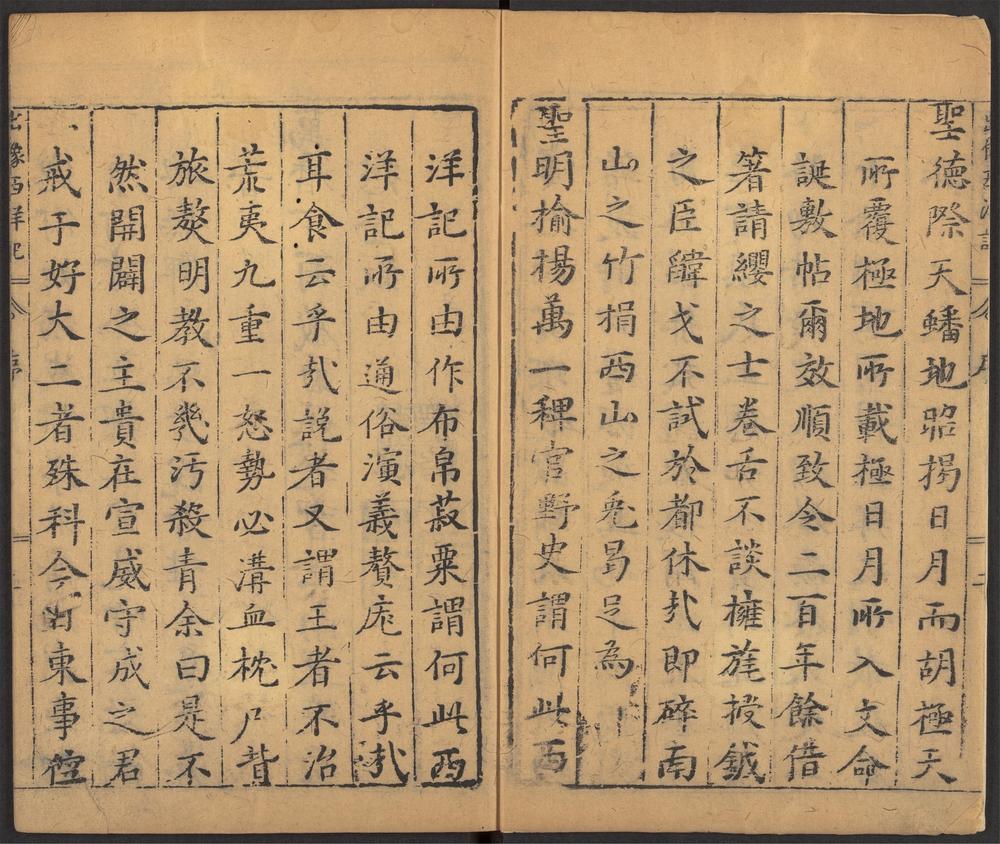 聖德際天蟠地昭揭日月而胡極天
所覆極地所載極日月所入文命
誕敷帖爾效順致今二百年餘借
箸請纓之士卷舌不談擁旄授鉞
之臣韔戈不試於都休㢤即碎南
山之竹捐西山之兎曷足為
聖明揄揚萬一稗官野史謂何此西
洋記所由作布帛菽粟謂何此西
洋記所由通俗演義贅庬云乎㢤
耳食云乎㢤説者又謂王者不治
荒夷九重一怒勢必溝血枕尸昔
旅獒明教不幾汚殺青余曰是不
然開闢之主貴在宣威守成之君
戒于好大二者殊科今者東事倥
出像西洋記
序